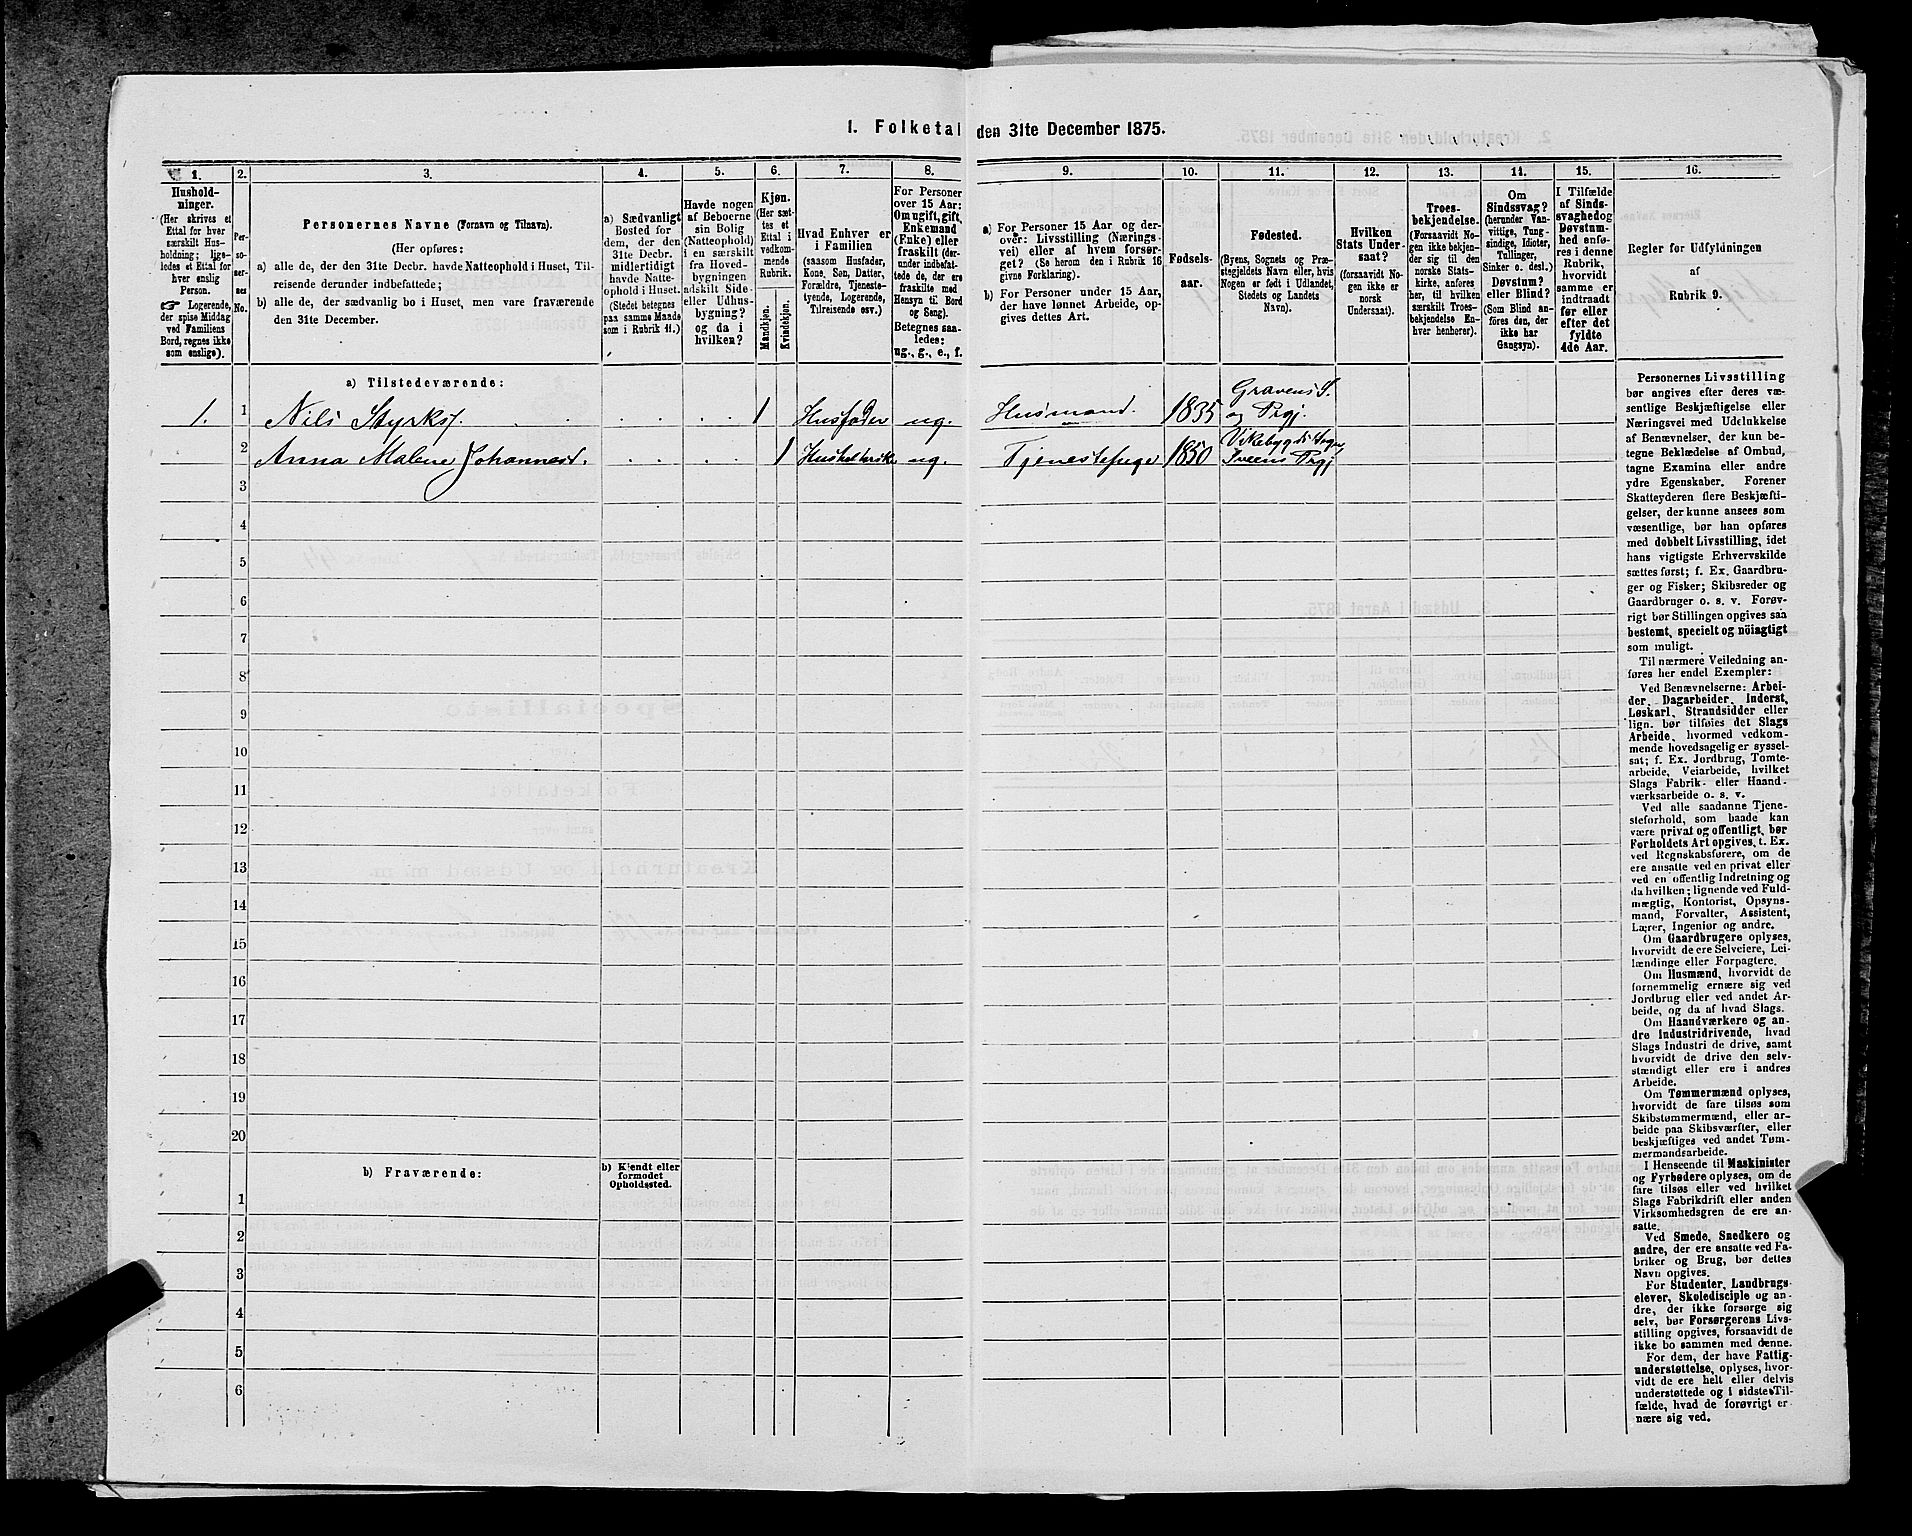 1. Folketal den 31te December 1875.
1.
Hushold-
ninger.
(Her skrives et
Ettal for hver
særskilt Hus-
holdning; lige-
ledes et Ettal for
hver enslig
Person.
☞ Logerende,
der spise Middag
ved Familiens
Bord, regnes ikke
som enslige).
2.
Per-
so-
ner-
nes
No.
3.
Personernes Navne (Fornavn og Tilnavn).
(Her opføres:
a) alle de, der den 31te Decbr. havde Natteophold i Huset, Til-
reisende derunder indbefattede;
b) alle de, der sædvanlig bo i Huset, men vare fraværende
den 31te December.
4.
a) Sædvanligt
Bosted for
dem, der den
31te Decbr.
midlertidigt
havde Natte-
ophold i Huset.
(Stedet betegnes
paa samme Maade
som i Rubrik 11.)
5.
Havde nogen
af Beboerne
sin Bolig
(Natteophold)
i en særskilt
fra Hoved-
bygningen
adskilt Side-
eller Udhus-
bygning?
og da i
hvilken?
6.
Kjøn.
(Her sæt-
tes et
Ettal i
vedkom-
mende
Rubrik.
Mandkjøn.
Kvindekjøn.
7.
Hvad Enhver er
i Familien
(saasom Husfader,
Kone, Søn, Datter,
Forældre, Tjeneste-
tyende, Logerende,
Tilreisende osv.)
8.
For Personer
over 15 Aar:
Om ugift, gift,
Enkemand
(Enke) eller
fraskilt (der-
under indbefat-
tede de, der ere
fraskilte med
Hensyn til Bord
og Seng).
Betegnes saa-
ledes:
ug., g., e., f.
9.
a) For Personer 15 Aar og der-
over: Livsstilling (Nærings-
vei) eller af hvem forsør-
get? (Se herom den i Rubrik 16
givne Forklaring).
b) For Personer under 15 Aar,
der have lønnet Arbeide, op-
gives dettes Art.
10.
Fødsels-
aar.
11.
Fødested.
(Byens, Sognets og Præ-
stegjeldets Navn eller, hvis
Nogen er født i Udlandet,
Stedets og Landets
Navn).
12.
Hvilken
Stats Under-
saat?
(forsaavidt No-
gen ikke er
norsk
Undersaat).
13.
Troes-
bekjendelse.
(Forsaavidt No-
gen ikke bekjen-
der sig til den
norske Stats-
kirke, anføres
her, til hvilken
særskilt Troes-
bekjendelse En-
hver henhører).
14.
Om
Sindssvag?
(herunder Van-
vittige, Tung-
sindige, Idioter,
Tullinger,
Sinker o. desl.)
Døvstum?
eller Blind?
(Som Blind an-
føres den, der
ikke har
Gangsyn).
15.
I Tilfælde
af Sinds-
svaghed og
Døvstum-
hed anfø-
res i denne
Rubrik,
hvorvidt
samme er
indtraadt
før eller
efter det
fyldte
4de Aar.
16.
Regler for Udfyldningen
af
Rubrik 9.
a) Tilstedeværende:
1. 1 Nils Styrks. 1 Husfader ug. Husmand. 1835 Gravens S.
og Prgj.
2 Anna Malene Johannesd. 1 ug. Tjenestepige 1850 Vikebygds Sogn
Prgj
3
4
5
6
7
8
9
10
11
12
13
14
15
16
17
18
19
20
b) Fraværende:
b) Kjendt eller
formodet
Opholdssted.
1
2
3
4
5
6
Personernes Livsstilling
bør angives efter deres væ-
sentlige Beskjæftigelse eller
Næringsvei med Udelukkelse
af Benævnelser, der kun be-
tegne Beklædelse af Ombud,
tagne Examina eller andre
ydre Egenskaber. Forener
Skatteyderen flere Beskjæfti-
gelser, der kunne ansees som
væsentlige, bør han opføres
med dobbelt Livsstilling, idet
hans vigtigste Erhvervskilde
sættes først; f. Ex. Gaardbru-
ger og Fisker; Skibsreder og
Gaardbruger o. s. v. Forøv-
rigt bør Stillingen opgives saa
bestemt, specielt og nöiagtigt
som muligt.
Til nærmere Veiledning an-
føres her endel Exempler:
Ved Benævnelserne: Arbei-
der, Dagarbeider, Inderst,
Løskarl, Strandsidder eller
lign. bør tilføies det Slags
Arbeide, hvormed vedkom-
mende hovedsagelig er syssel-
sat; f. Ex. Jordbrug, Tomte-
arbeide, Veiarbeide, hvilket
Slags Fabrik- eller Haand-
værksarbeide o. s. v.
Ved alle saadanne Tjene-
steforhold, som baade kan
være privat og offentligt, bør
Forholdets Art opgives, t. Ex.
ved Regnskabsførere, om de
ere ansatte ved en privat eller
ved en offentlig Indretning og
da hvilken; lignende ved Fuld-
mægtig, Kontorist, Opsyns-
mand, Forvalter, Assistent,
Lærer, Ingeniør og andre.
Om Gaardbrugere oplyses,
hvorvidt de ere Selveiere, Lei-
lændinge eller Forpagtere.
Om Husmænd, hvorvidt de
fornemmelig ernære sig ved
Jordbrug eller ved andet Ar-
beide, og da af hvad Slags.
Om Haandværkere og an-
dre Industridrivende, hvad
Slags Industri de drive, samt
hvorvidt de drive den selv-
stændigt eller ere i andres
Arbeide.
Om Tømmermænd oplyses,
hvorvidt de fare tilsøs som
Skibstømmermænd, eller ar-
beide paa Skibsværfter, eller
beskjæftiges ved andet Tøm-
mermandsarbeide.
I Henseende til Maskinister
og Fyrbødere oplyses, om de
fare tilsøs eller ved hvilket
Slags Fabrikdrift eller anden
Virksomhedsgren de ere an-
satte.
Ved Smede, Snedkere og
andre, der ere ansatte ved Fa-
briker og Brug, bør dettes
Navn opgives.
For Studenter, Landbrugs-
elever, Skoledisciple og an-
dre, der ikke forsørge sig
selv, bør Forsørgerens Livs-
stilling opgives, forsaavidt de
ikke bo sammen med denne.
For dem, der have Fattig-
understøttelse, oplyses, hvor-
vidt de ere helt eller delvis
understøttede og i sidste Til-
fælde, hvad de forøvrigt er-
nære sig ved.